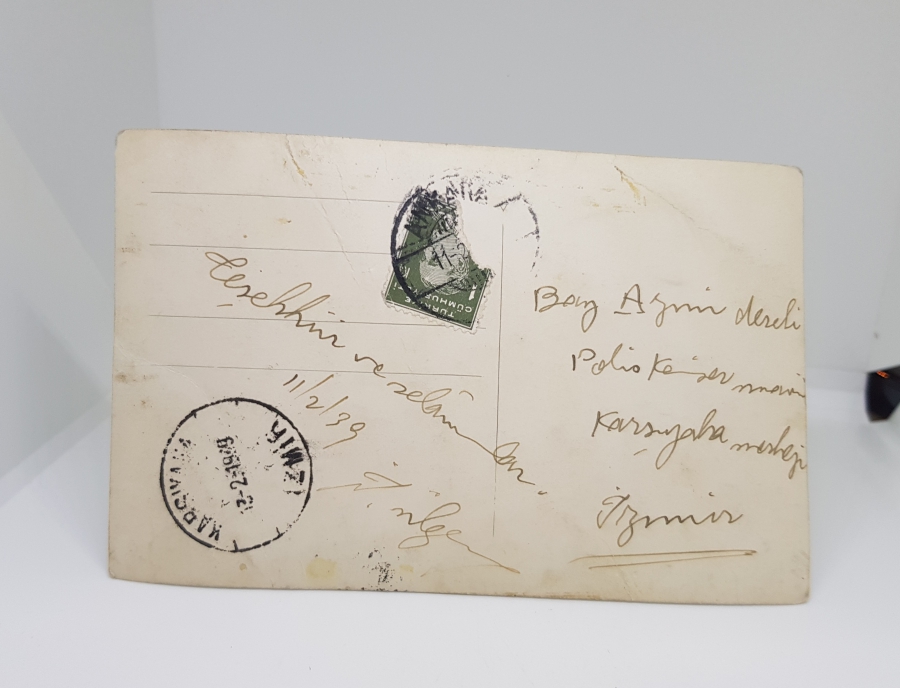 Teşekkür ve selâmlar.
11/2/39
ülgen
Bay Azmi dereli
Polis Komiser
Karşıyaka merkezi
İzmir
TÜRKİYE
CÜMHURİYETİ
1
11-2
KARŞIYAKA
12-2-1939
İZMİR